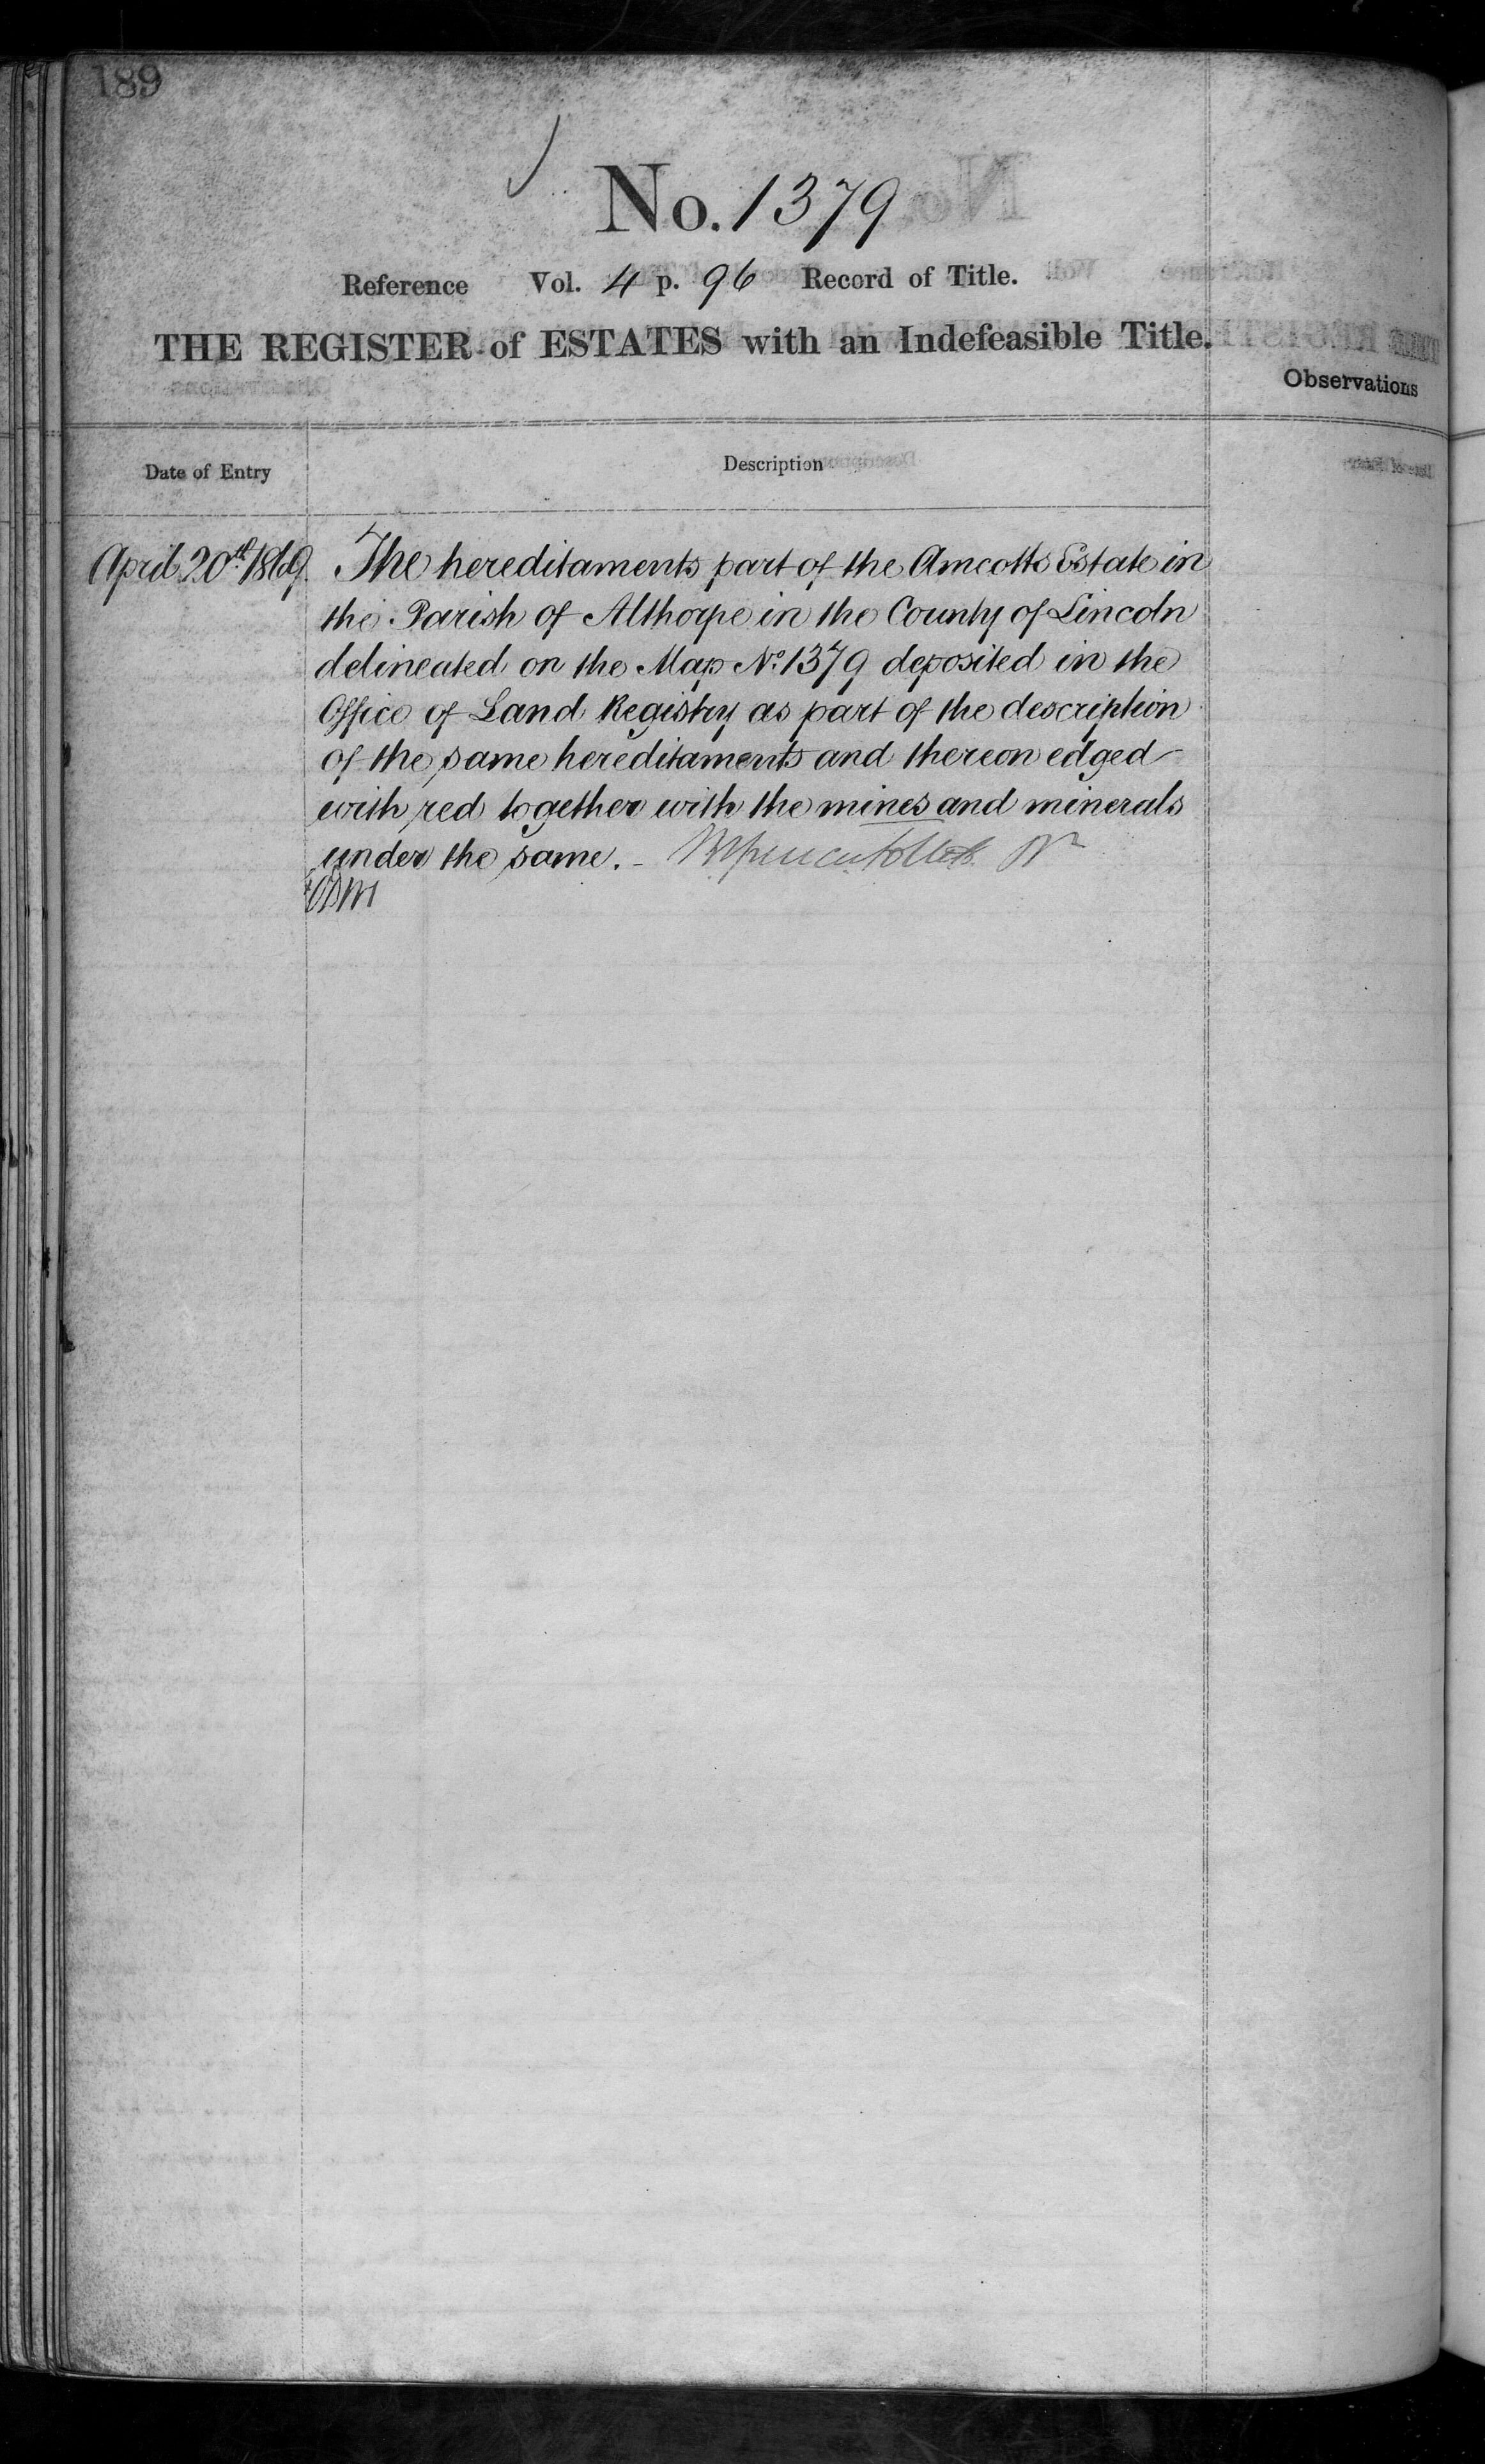 189
No. 1379
Reference Vol. 4 p. 96 Record of Title.
THE REGISTER of ESTATES with an Indefeasible Title.
Observations
Date of Entry
Description
April 20th 1869. The hereditaments part of the Amcotts Estate in
the Parish of Althorpe in the County of Lincoln
delineated on the Map No. 1379 deposited in the
Office of Land Registry as part of the description
of the same hereditaments and thereon edged
with red together with the mines and minerals
under the same. -